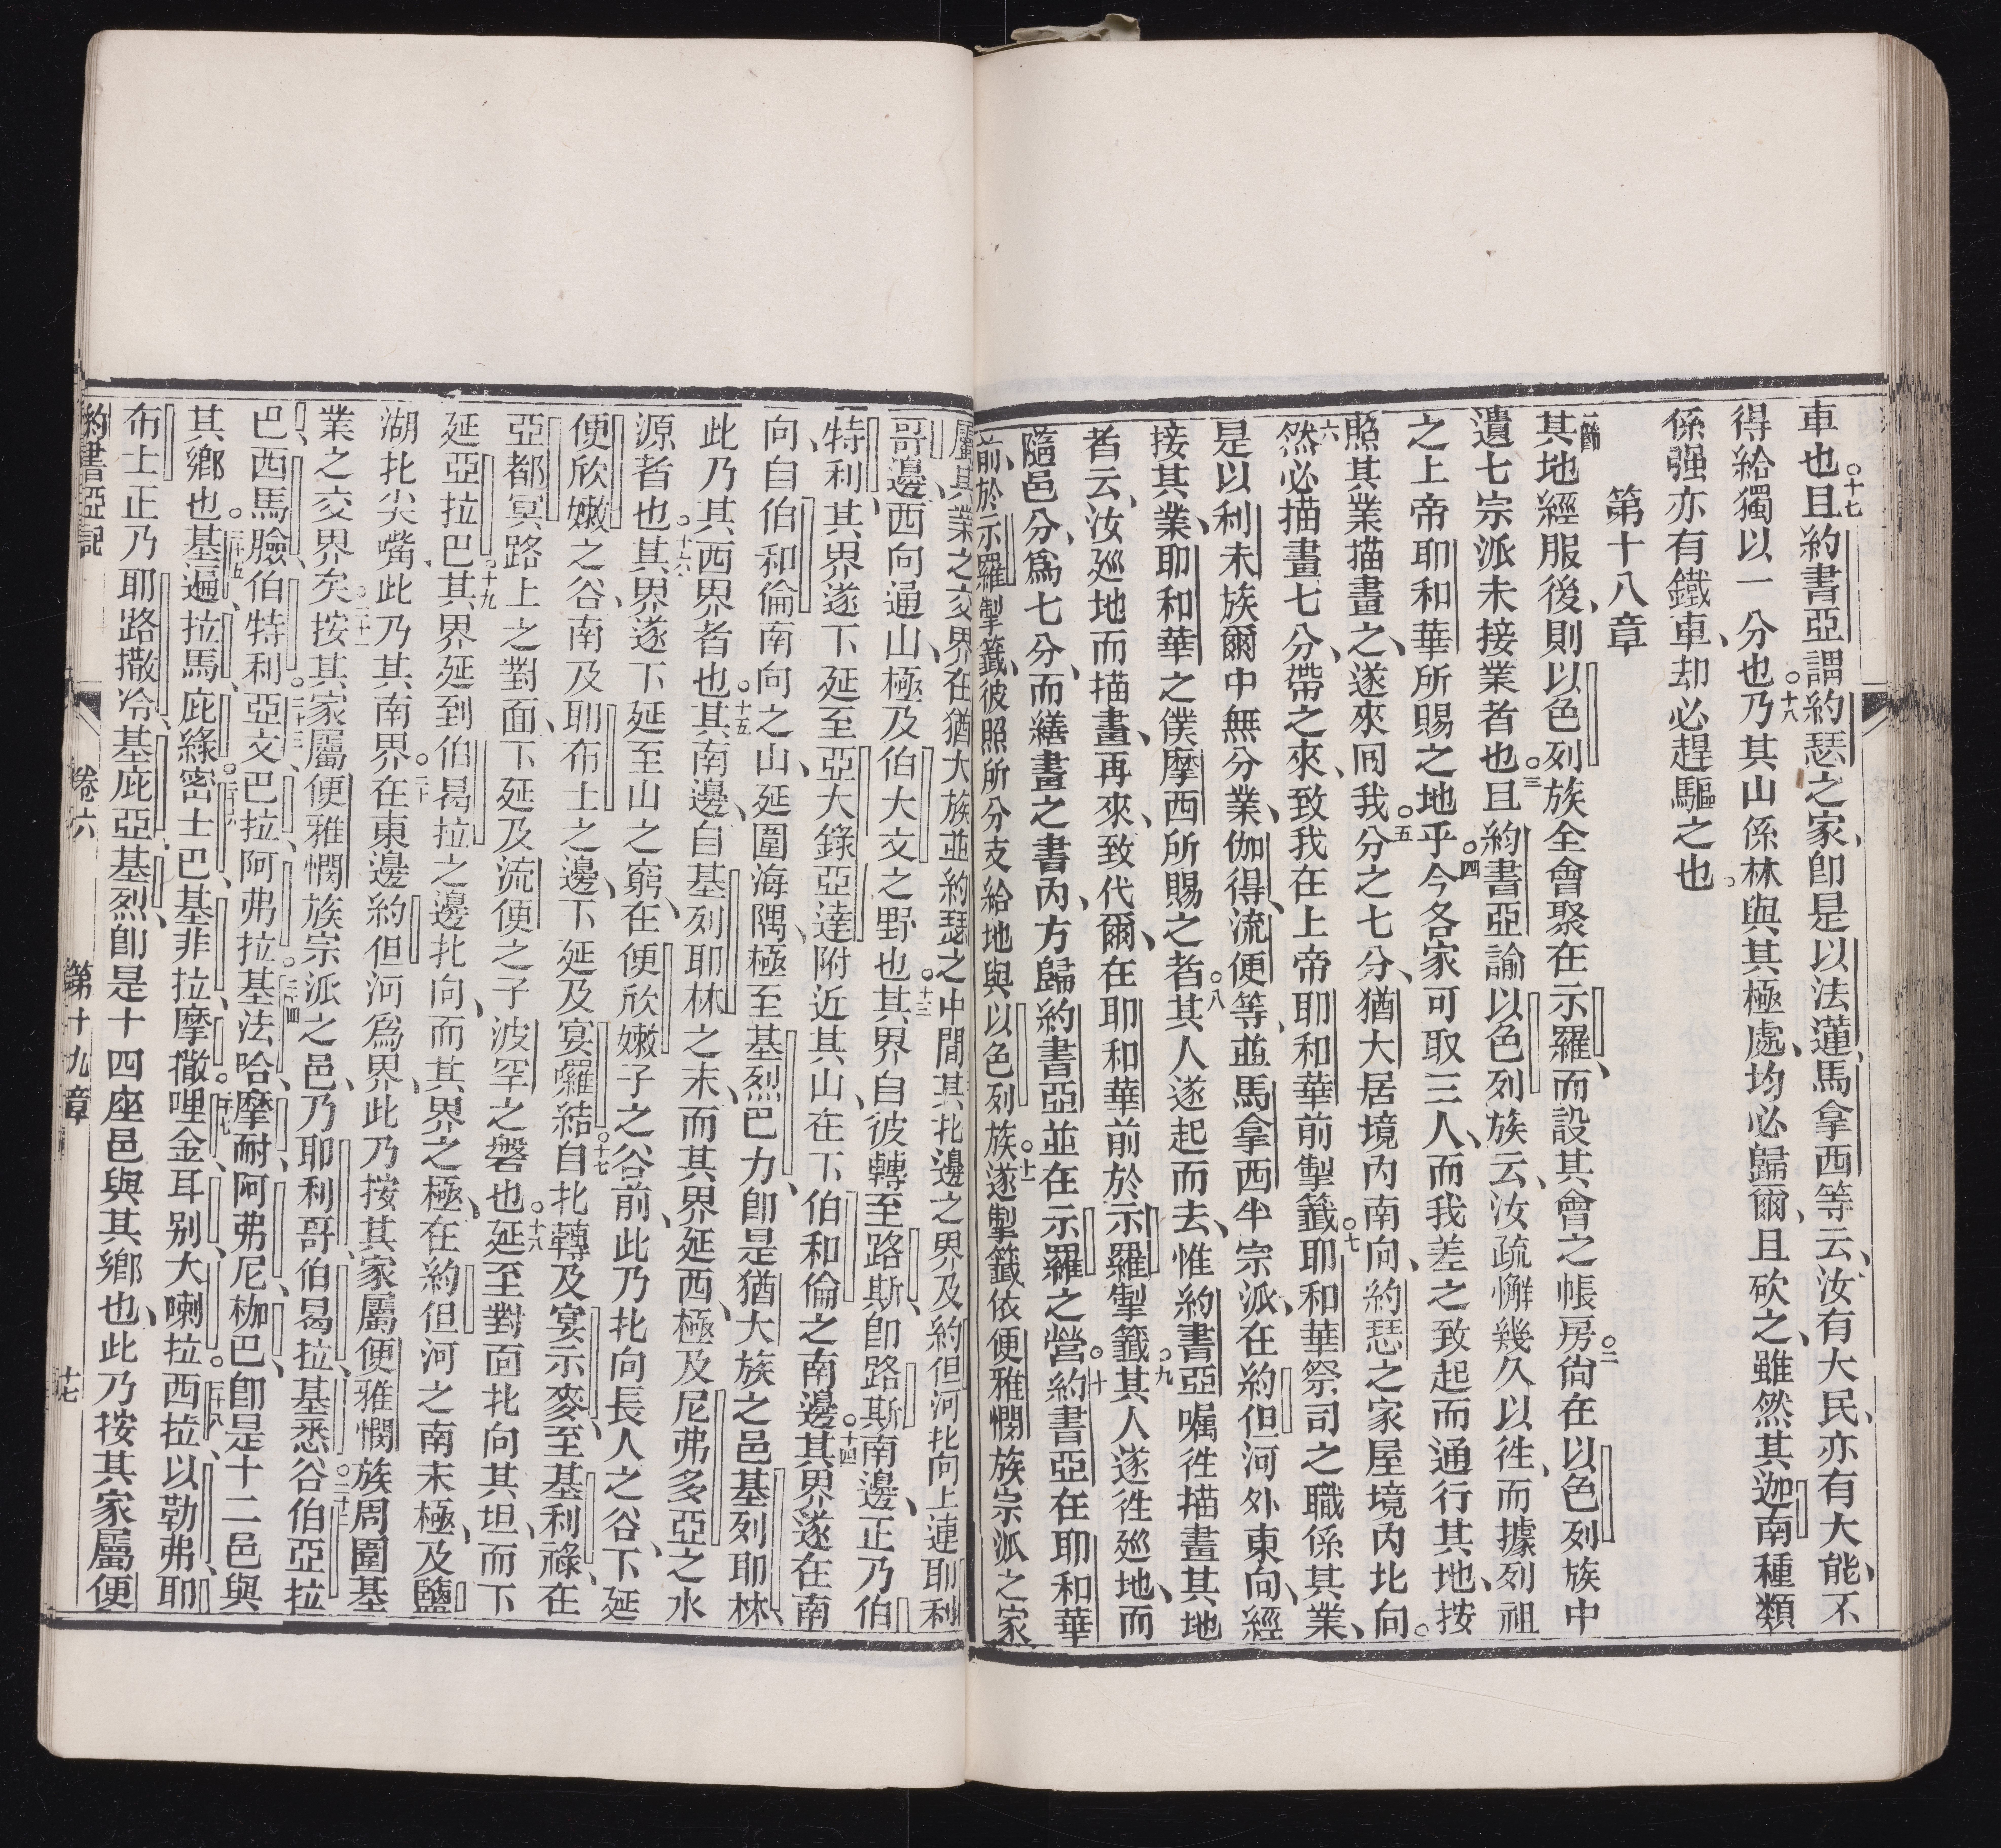 車也○十七且約書亞謂約瑟之家、卽是以法蓮、馬拿西等云、汝有大民、亦有大能、不
得給獨以一分也○十八乃其山係林與其極處、均必歸爾、且砍之、雖然其迦南種類
係强亦有鐵車、却必趕驅之也。
第十八章
其地經服後、則以色列族全會聚在示羅、而設其會之帳房○二尙在以色列族中
遺七宗派未接業者也○三且約書亞諭以色列族云、汝疏懈幾久以徃、而據列祖
之上帝耶和華所賜之地乎○四今各家可取三人、而我差之致起而通行其地、按
照其業描畫之、遂來囘我○五分之七分、猶大居境內南向、約瑟之家屋境內北向。
六然必描畫七分、帶之來、致我在上帝耶和華前掣籤○七耶和華祭司之職係其業、
是以利未族爾中無分業、伽得、流便等、並馬拿西半宗派、在約但河外東向、經
接其業、耶和華之僕摩西所賜之者○八其人遂起而去、惟約書亞囑徃描畫其地
者云、汝廵地而描畫、再來、致代爾、在耶和華前於示羅掣籤○九其人遂徃廵地、而
隨邑分、爲七分、而繕畫之書內、方歸約書亞並在示羅之營○十約書亞在耶和華
前、於示羅掣籤、彼照所分支給地與以色列族○十一遂掣籤依便雅憫族宗派之家
屬其業之交界在猶大族並約瑟之中間○十二其北邊之界及約但河北向上連耶利
哥邊、西向通山、極及伯大文之野也○十三其界自彼轉至路斯、卽路斯南邊、正乃伯
特利、其界遂下延至亞大錄亞達附近其山、在下伯和倫之南邊○十四其界遂在南
向、自伯和倫南向之山、延圍海隅、極至基烈巴力、卽是猶大族之邑基列耶林、
此乃其西界者也○十五其南邊、自基列耶林之末、而其界延西、極及尼弗多亞之水
源者也○十六其界遂下延至山之窮、在便欣嫩子之谷前、此乃北向長人之谷、下延
便欣嫩之谷、南及耶布士之邊、下延及宴囉結○十七自北轉及宴示麥、至基利祿、在
亞都冥路上之對面、下延及流便之子波罕之磐也○十八延至對面北向其坦、而下
延亞拉巴○十九其界延到伯曷拉之邊北向、而其界之極、在約但河之南末極、及鹽
湖北尖嘴、此乃其南界○二十在東邊約但河爲界、此乃按其家屬便雅憫族周圍基
業之交界矣○二十一按其家屬便雅憫族宗派之邑、乃耶利哥、伯曷拉、基悉谷○二十二伯亞拉
巴、西馬臉、伯特利○二十三亞文、巴拉、阿弗拉○二十四基法哈摩耐、阿弗尼、枷巴、卽是十二邑與
其鄉也○二十五基遍、拉馬、庇綠○二十六密士巴、基非拉、摩撒○二十七哩金、耳別、大喇拉○二十八西拉、以勒弗、耶
布士正乃耶路撒冷、基庇亞、基烈、卽是十四座邑與其鄉也、此乃按其家屬便
約書亞記 卷六 第十九章 十七